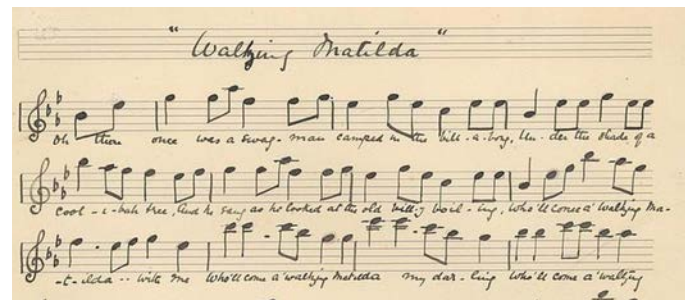 "Waltzing Matilda"
Oh there once was a swag-man camped in the bill-a-bong, Un-der the shade of a
Cool-i-bah tree, And he sang as he looked at the old billy boil-ing, Who'll come a' waltzing Ma-
-t-ilda -- with me Who'll come a' waltzing Matilda my dar-ling Who'll come a' waltzing